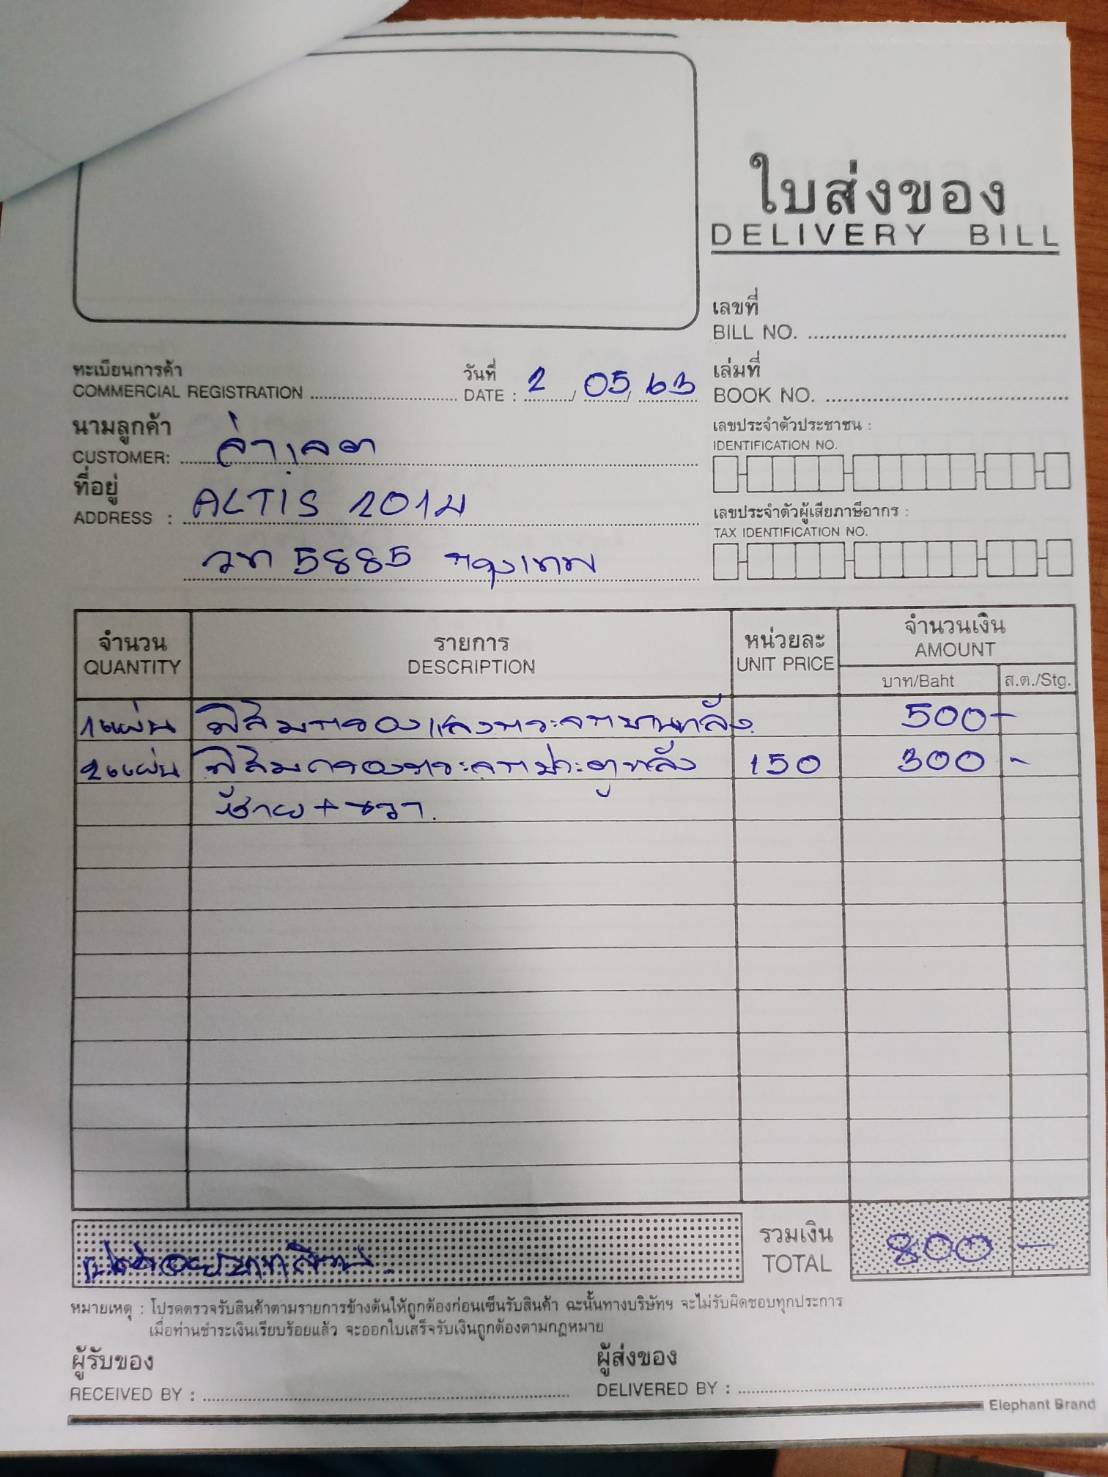 ใบส่งของ
DELIVERY BILL
เลขที่
BILL NO.
ทะเบียนการค้า
COMMERCIAL REGISTRATION
วันที่
DATE : 2 / 05 / 63
เล่มที่
BOOK NO.
นามลูกค้า
CUSTOMER:
เลขประจำตัวประชาชน :
IDENTIFICATION NO.
ที่อยู่
ADDRESS : ALTIS 2014
5885 กรุงเทพ
เลขประจำตัวผู้เสียภาษีอากร :
TAX IDENTIFICATION NO.
จำนวน
QUANTITY
รายการ
DESCRIPTION
หน่วยละ
UNIT PRICE
จำนวนเงิน
AMOUNT
บาท/Baht
ส.ต./Stg.
1แผ่น ฟิล์มกรองแสงกระจกบานหลัง 500 -
2แผ่น ฟิล์มกรองกระจกประตูหลัง 150 300 -
ซ้าย + ขวา.
แปดร้อยบาทถ้วน
รวมเงิน
TOTAL
800 -
หมายเหตุ : โปรดตรวจรับสินค้าตามรายการข้างต้นให้ถูกต้องก่อนเซ็นรับสินค้า ฉะนั้นทางบริษัทฯ จะไม่รับผิดชอบทุกประการ
เมื่อท่านชำระเงินเรียบร้อยแล้ว จะออกใบเสร็จรับเงินถูกต้องตามกฎหมาย
ผู้รับของ
RECEIVED BY :
ผู้ส่งของ
DELIVERED BY :
Elephant Brand